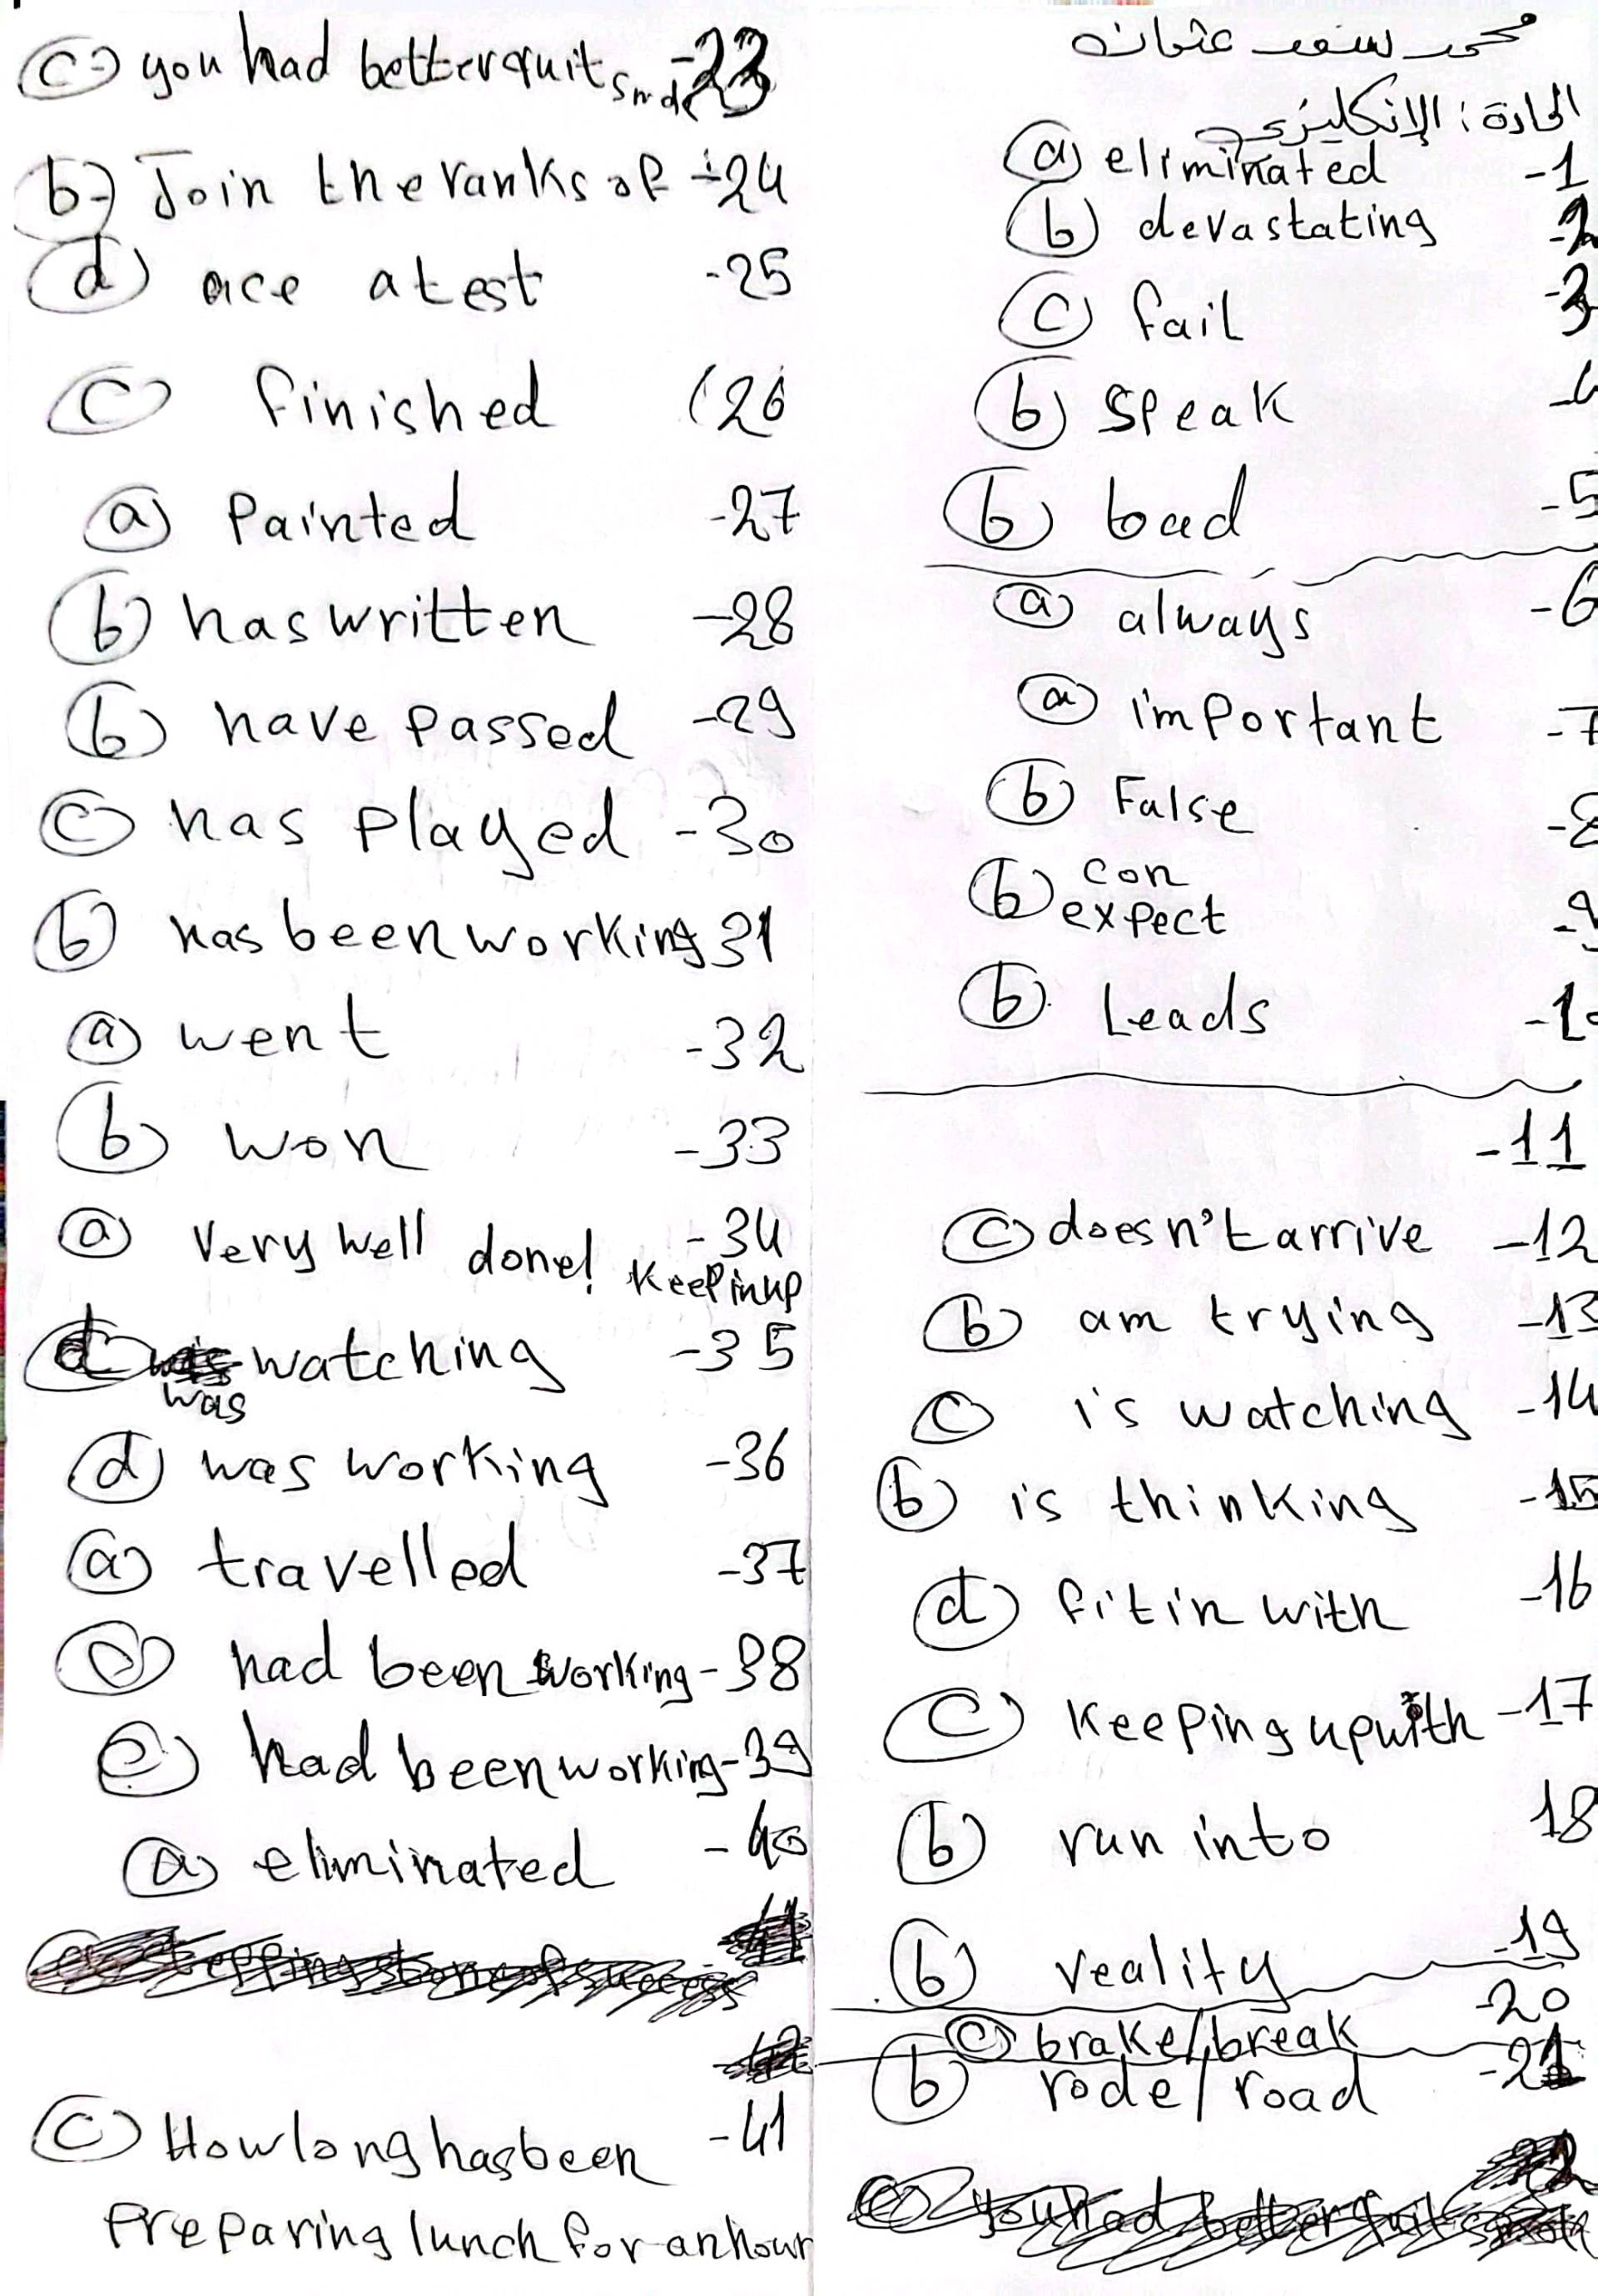 محمد سعد عثمان
المادة : الإنكليزي
1- a eliminated
2- b devastating
3- c fail
4- b speak
5- b bad
6- a always
7- a important
8- b False
9- b con
expect
10- b Leads
11-
12- c doesn't arrive
13- b am trying
14- c is watching
15- b is thinking
16- d fit in with
17- c keeping up with
18 b run into
19- b reality
20- c brake/break
21- b rode/road
23- c- you had better quit
24- b- Join the ranks of
25- d ace a test
26 c finished
27- a Painted
28- b has written
29- b have passed
30- c has played
31 b has been working
32- a went
33- b won
34- a Very well done! keep in up
35- d was watching
36- d was working
37- a travelled
38- had been working
39- had been working
40- a eliminated
41- c How long has been
Preparing lunch for an hour